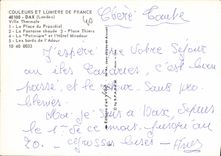 COULEURS ET LUMIÈRE DE FRANCE
40100 - DAX (Landes)
Ville Thermale
1 - La Place du Presidial
2 - La Fontaine chaude 3 - Place Thiers
4 - Le Thermique et l'Hôtel Miradour
5 - Les bords de l'Adour
10 40 0033
40
J'espère que Votre Séjour
au îles Canaries, c'est bien
passé, et le retour sans pro
blèmes.
Moi je suis à Dax depuis
le 1er de ce mois jusqu'au
20. - grosses bises -